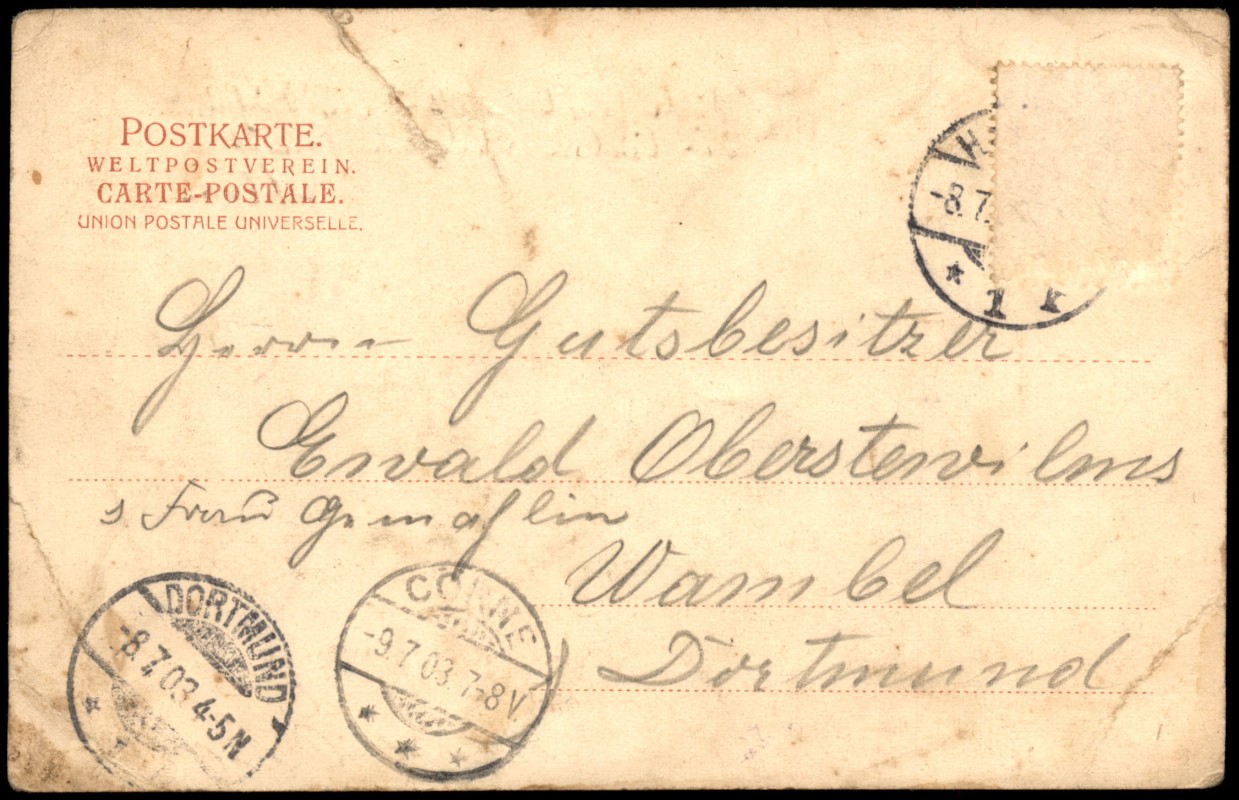 POSTKARTE.
WELTPOSTVEREIN.
CARTE-POSTALE.
UNION POSTALE UNIVERSELLE.
-8.7.
* 1 k
Herrn Gutsbesitzer
Ewald Oberstewilms
s Frau Gemahlin
Wambel
Dortmund
DORTMUND
-8.7.03.4-5N
* 1 *
CÖRNE
-9.7.03.7-8V.
* * *